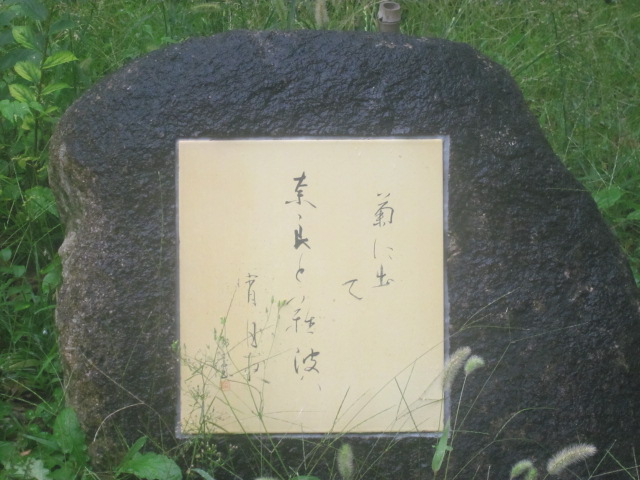 菊に出て
奈良と難波ハ
宵月夜